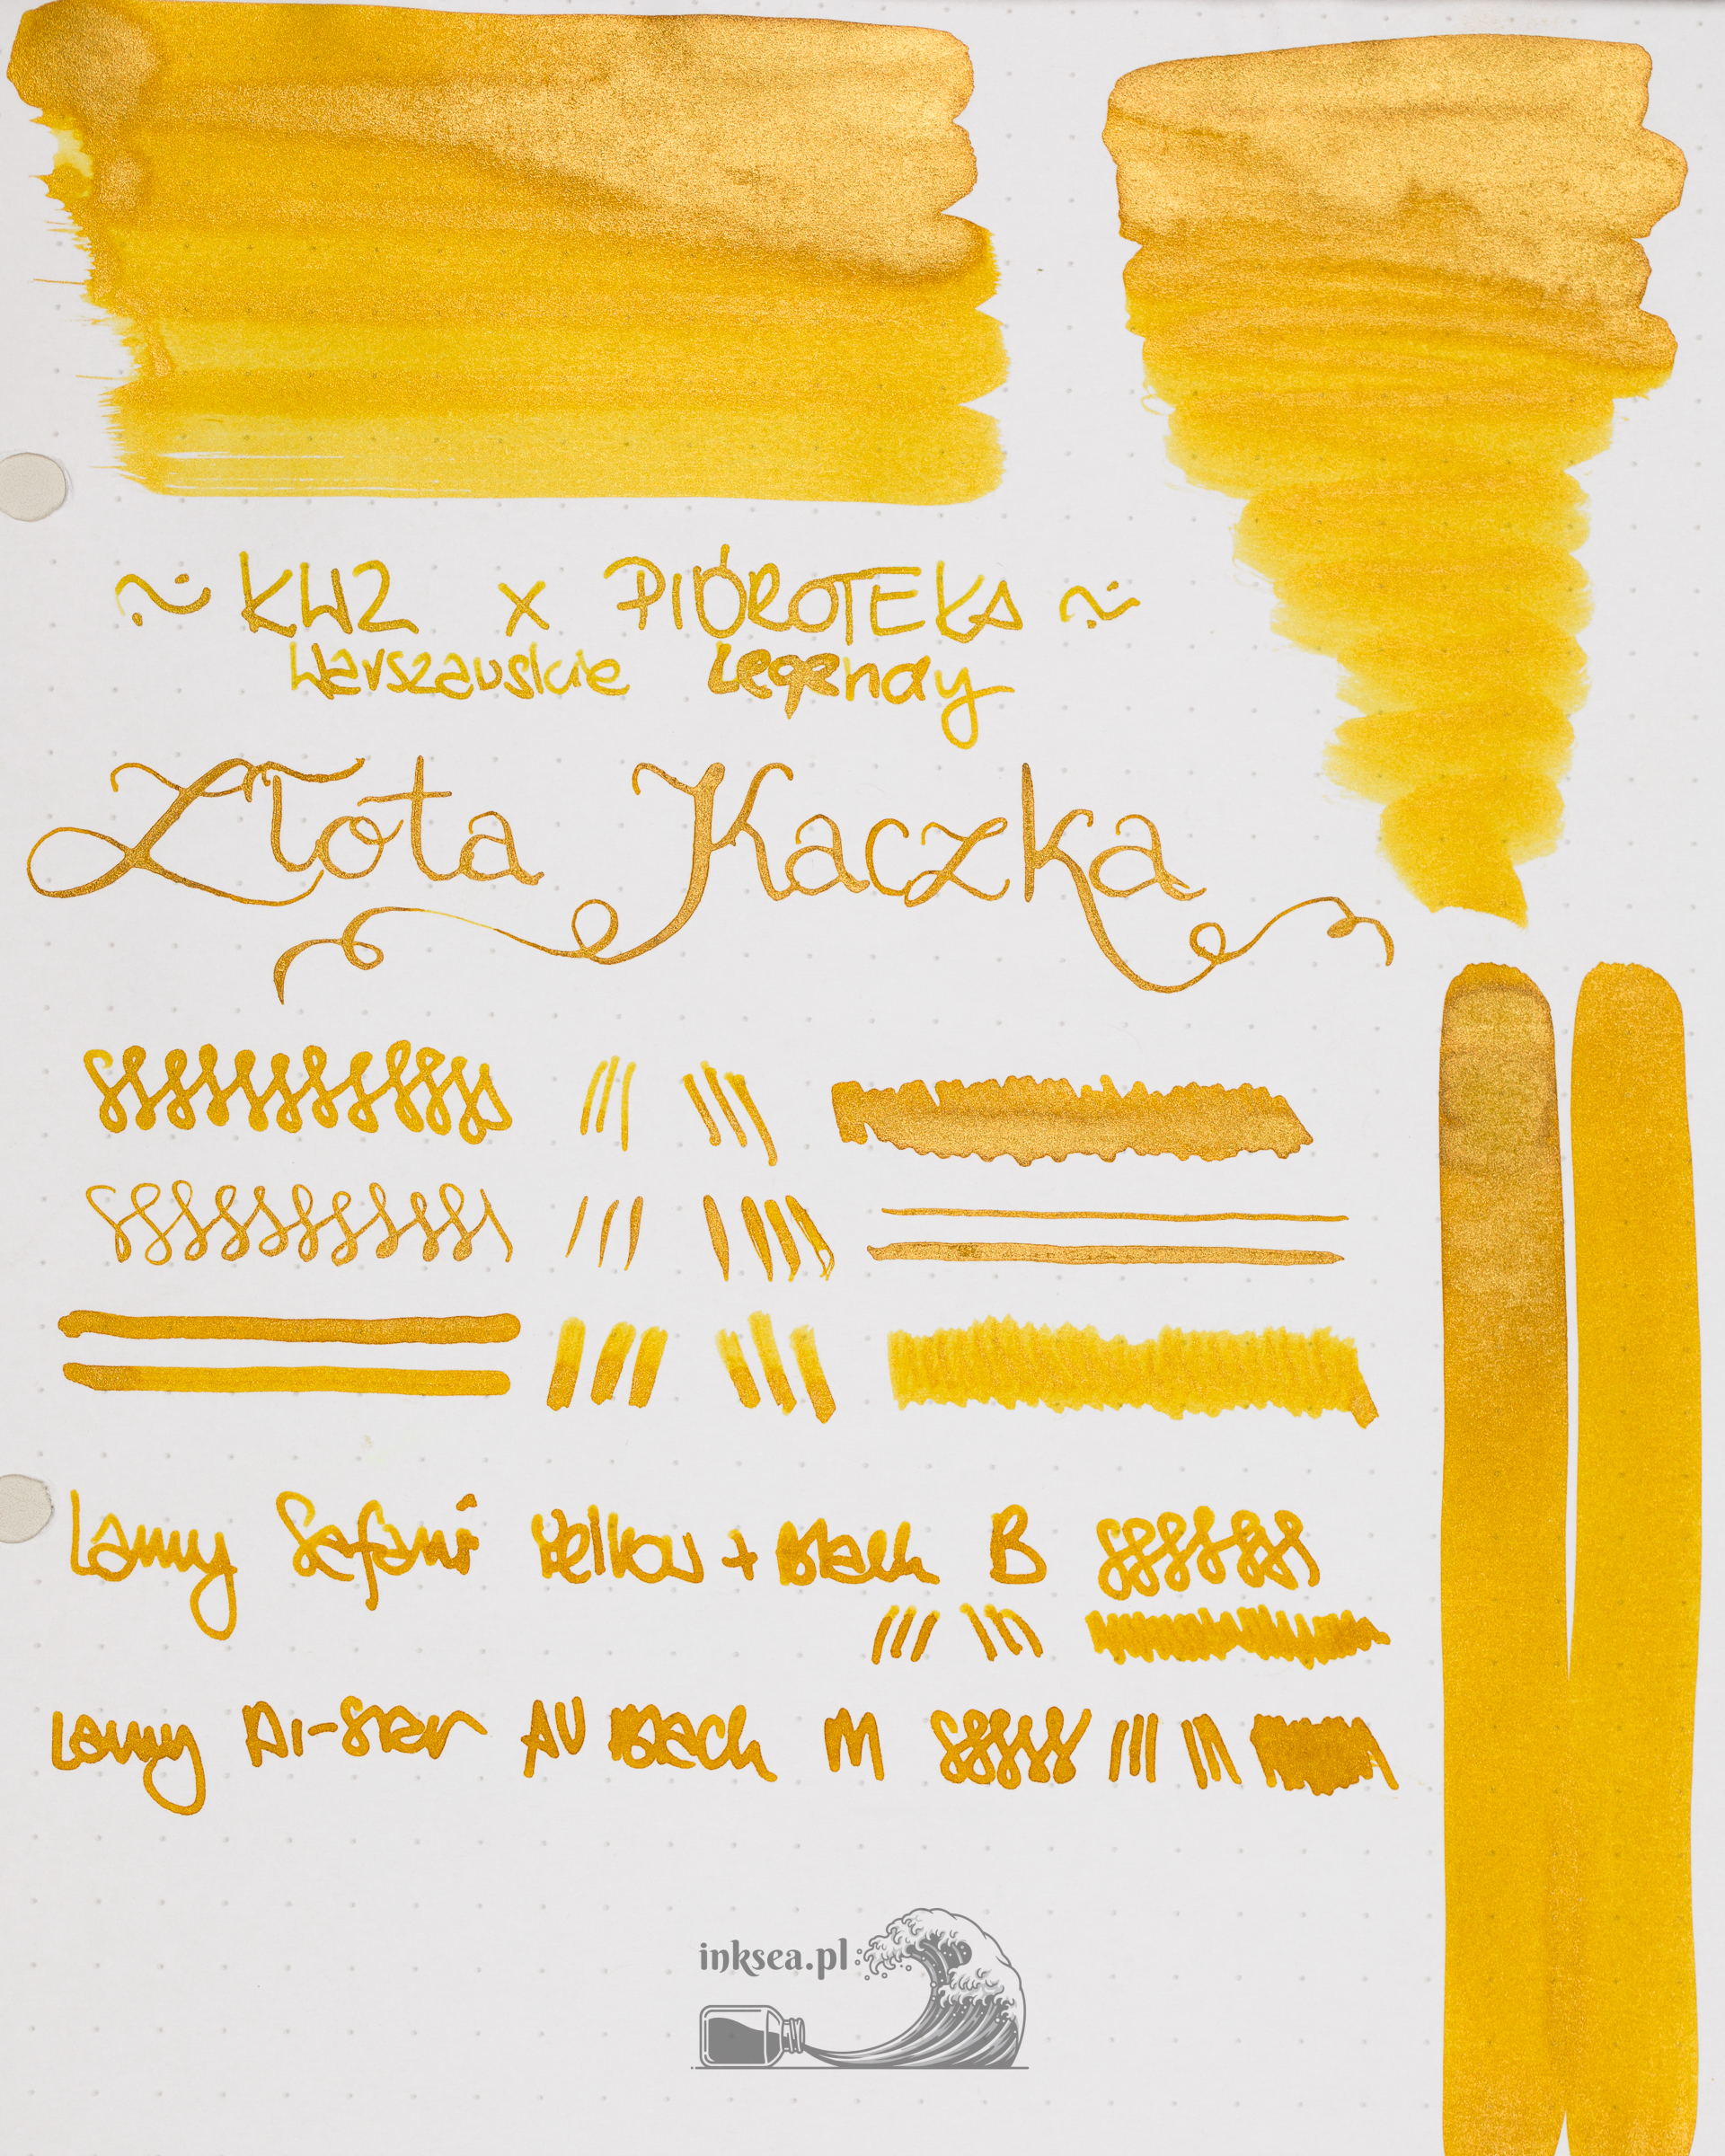 ~ KWZ x PIÓROTEKA ~
Warszawskie Legendy
Złota Kaczka
Lamy Safari Yellow + Black B
Lamy Al-Star AU Black M
inksea.pl